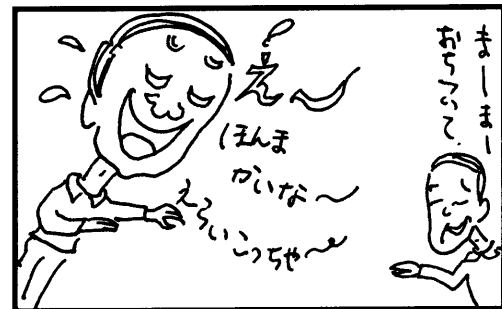 まーまー
おちついて.
え〜
ほんま
かいな〜
えらいこっちゃ〜